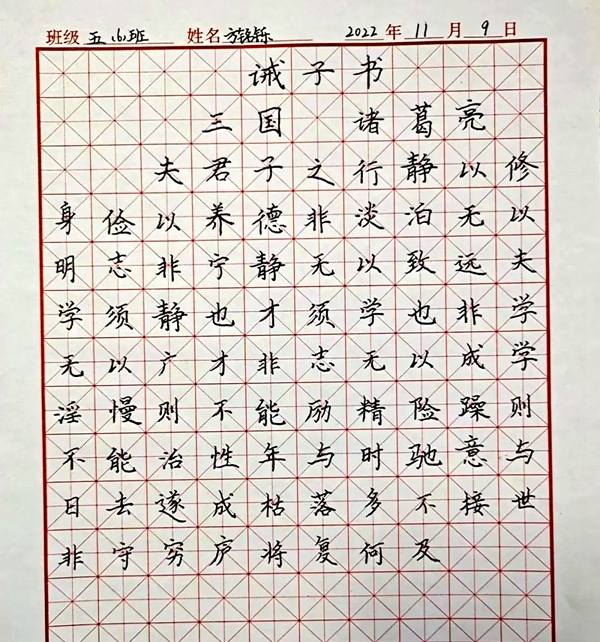 班级 五 班 姓名 铭铄 2022 年 11 月 9 日
诫子书
三国 诸葛亮
夫君子之行静以修
身俭以养德非淡泊无以
明志非宁静无以致远夫
学须静也才须学也非学
无以广才非志无以成学
淫慢则不能励精险躁则
不能治性年与时驰意与
日去遂成枯落多不接世
非守穷庐将复何及